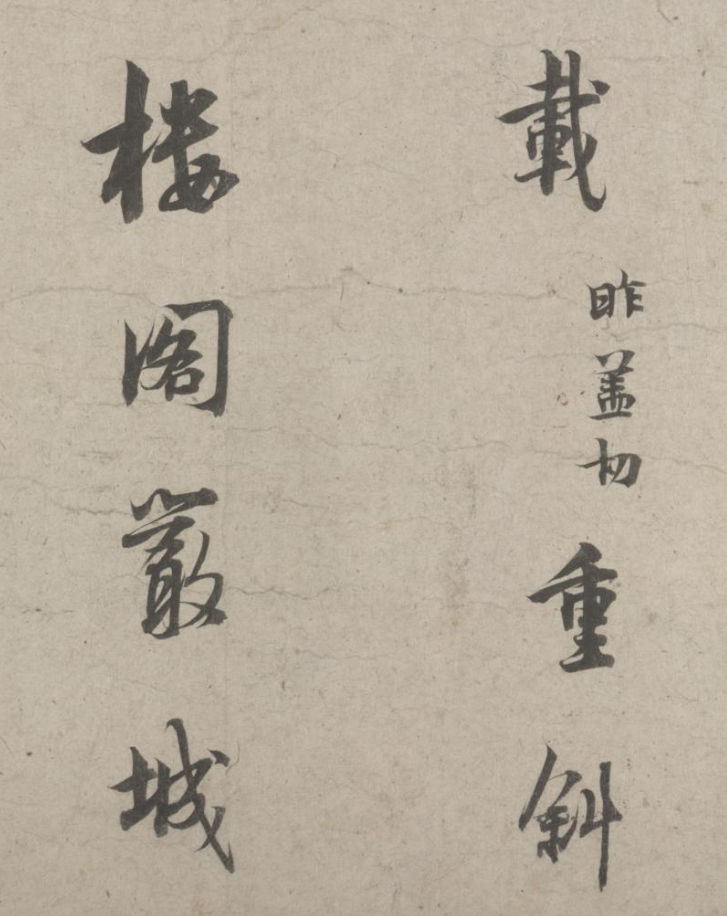 載昨盖切重斜
樓閣嚴城